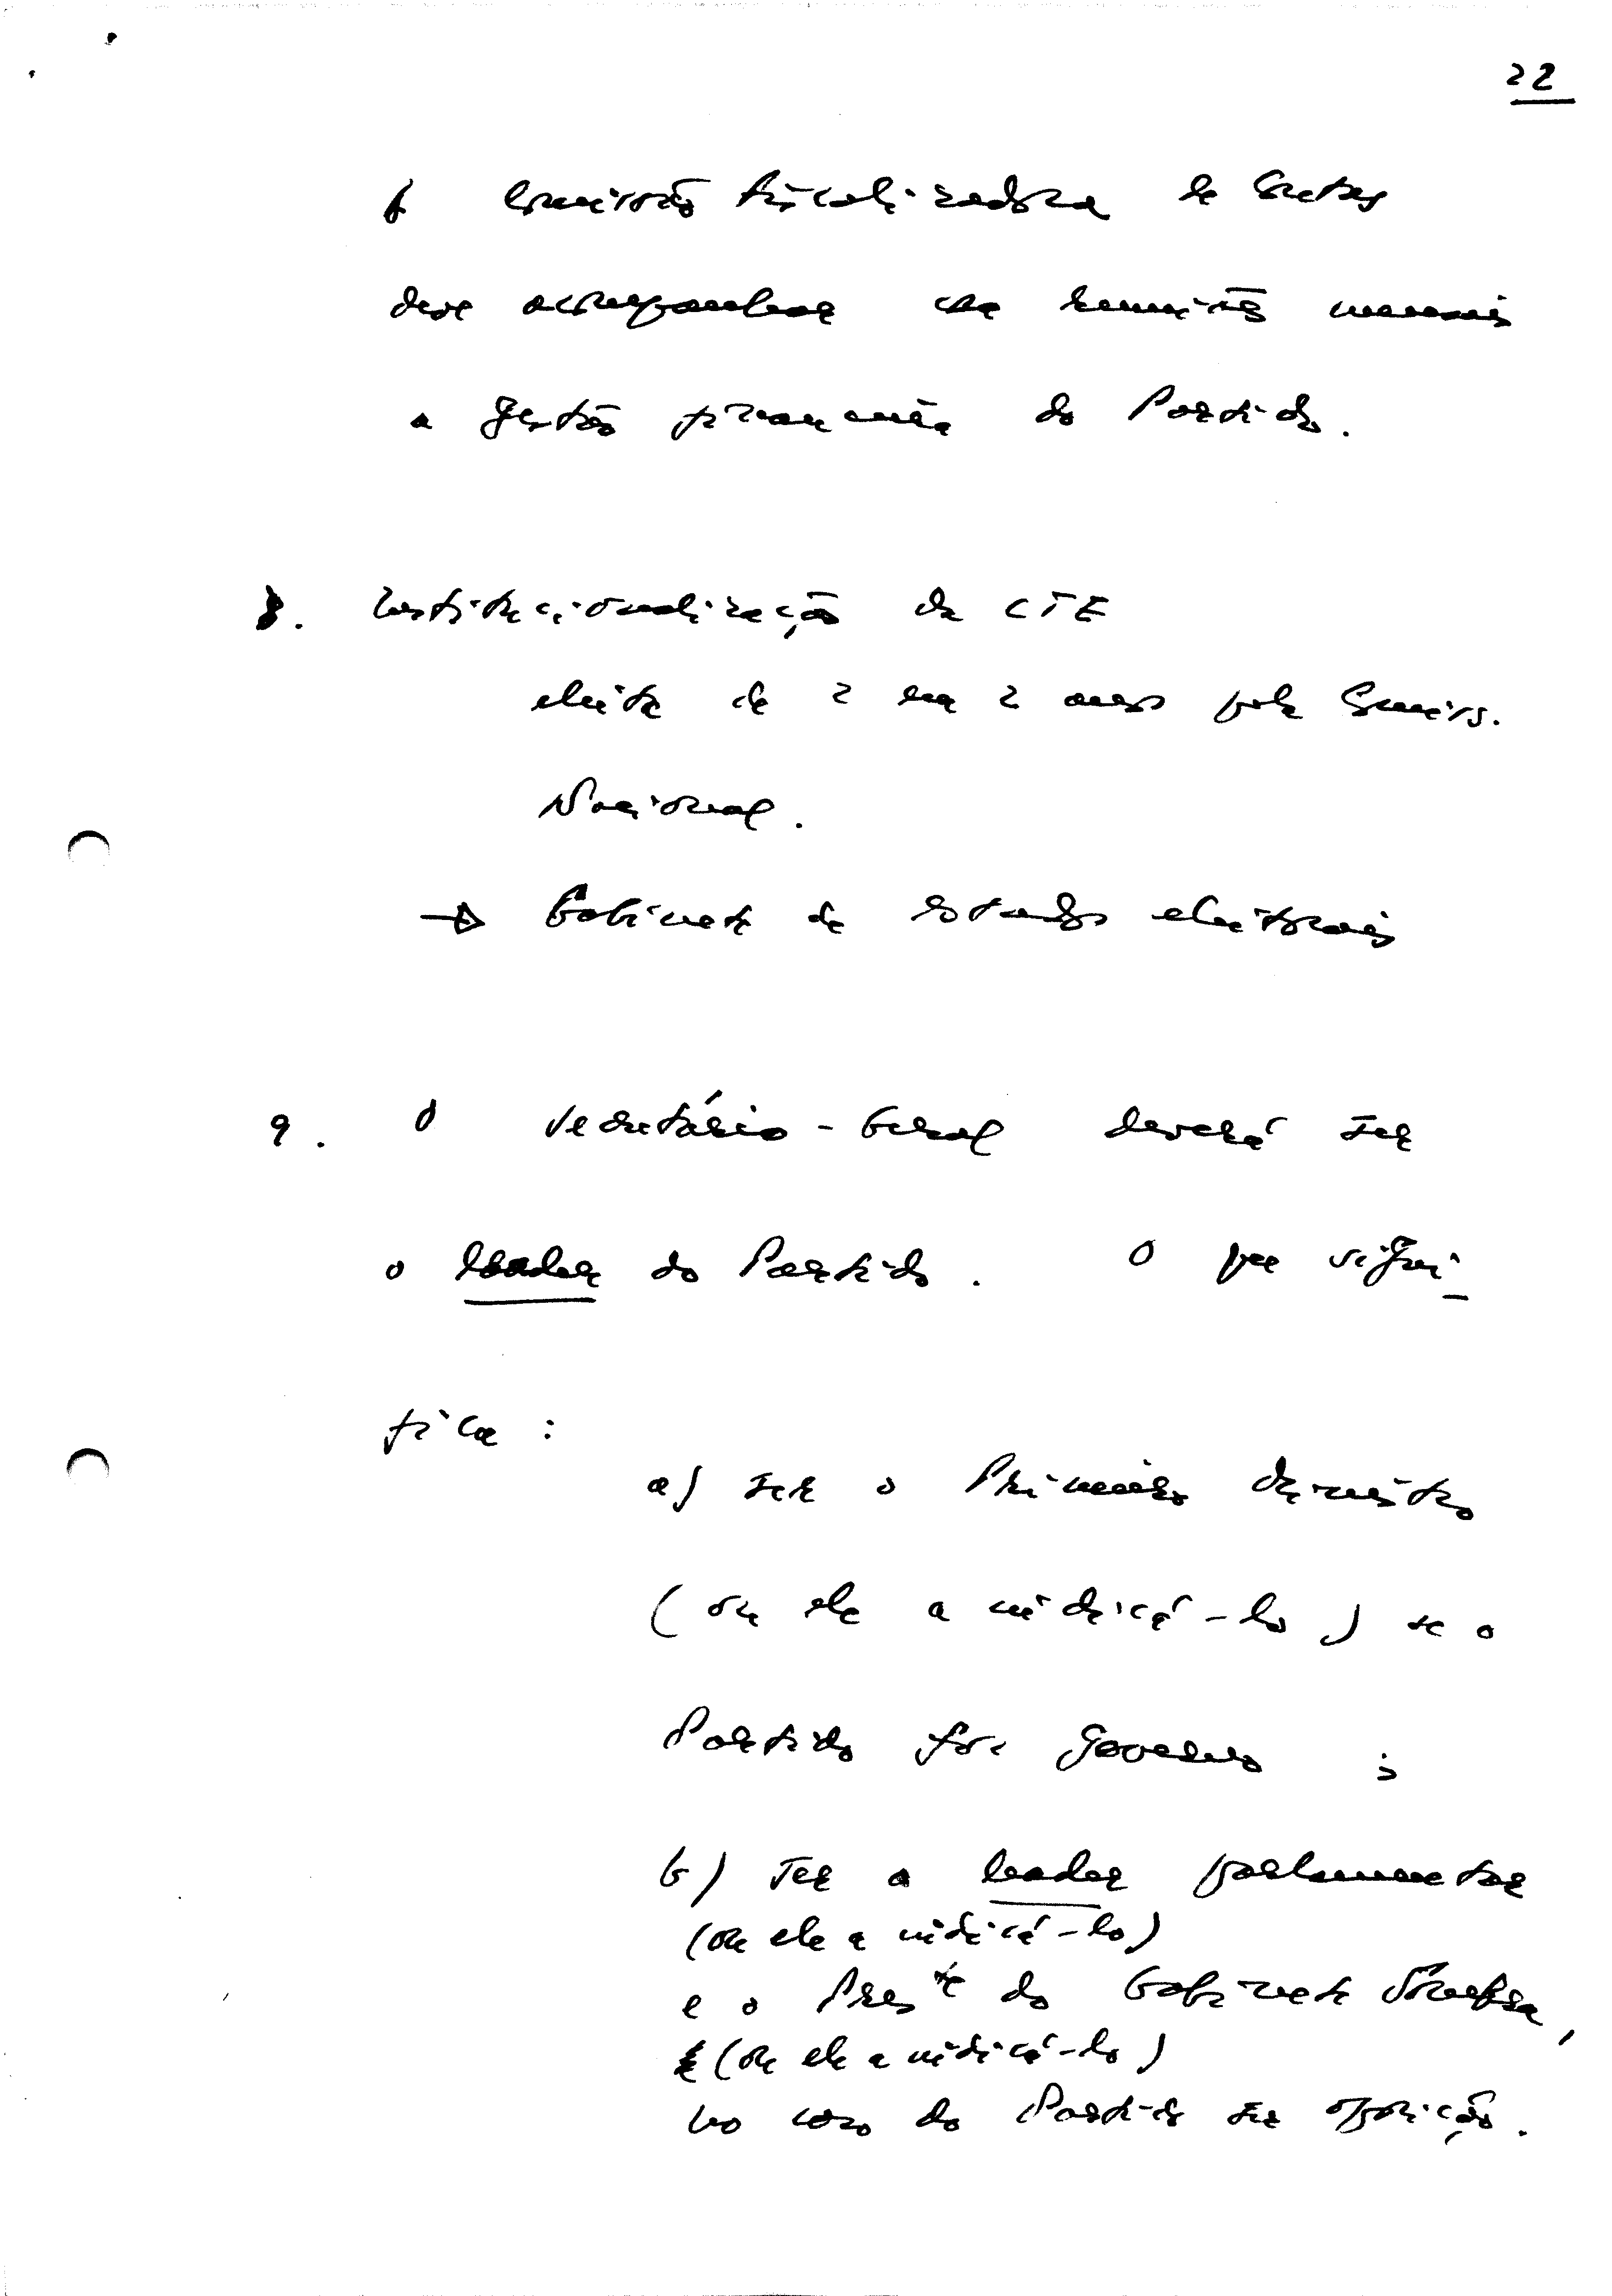 22
A Comissão Fiscalizadora de Contas
deve acompanhar em reuniões mensais
a gestão financeira do Partido.
8. Institucionalização da CTE
eleita de 2 em 2 anos pela Comiss.
Nacional.
→ Gabinete de Estudos eleitorais
9. O Secretário-Geral deverá ser
o leader do Partido. O que signi-
fica :
a) ser o Primeiro Ministro
(ou ele a indicá-lo) se o
Partido for Governo ;
b) Ser o leader parlamentar
(ou ele a indicá-lo)
e o Pres.te do Gabinete Sombra,
(ou ele a indicá-lo)
no caso do Partido ser oposição.